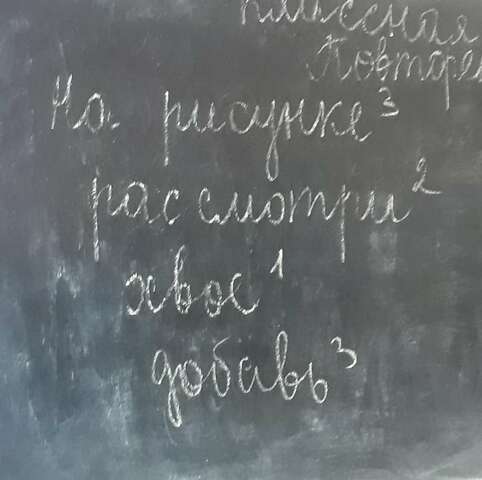 Классная
Повторе
На рисунке³
рассмотри²
хвое¹
добавь³